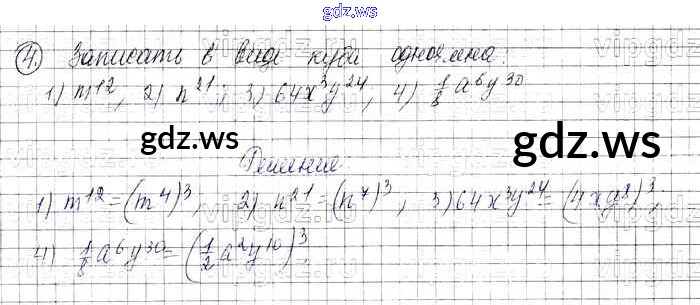 gdz.ws
4. Записать в виде куба одночлена:
1) m¹², 2) n²¹; 3) 64x³y²⁴, 4) 1/8 a⁶y³⁰
gdz.ws
gdz.ws
Решение
1) m¹² = (m⁴)³, 2) n²¹ = (n⁷)³, 3) 64x³y²⁴ = (4xy⁸)³,
4) 1/8 a⁶y³⁰ = (1/2 a²y¹⁰)³
gdz.ws